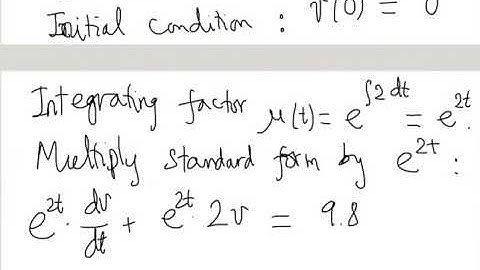 Initial condition : v(0) = 0
Integrating factor μ(t) = e^{∫2 dt} = e^{2t}.
Multiply standard form by e^{2t} :
e^{2t} · dv/dt + e^{2t} · 2v = 9.8